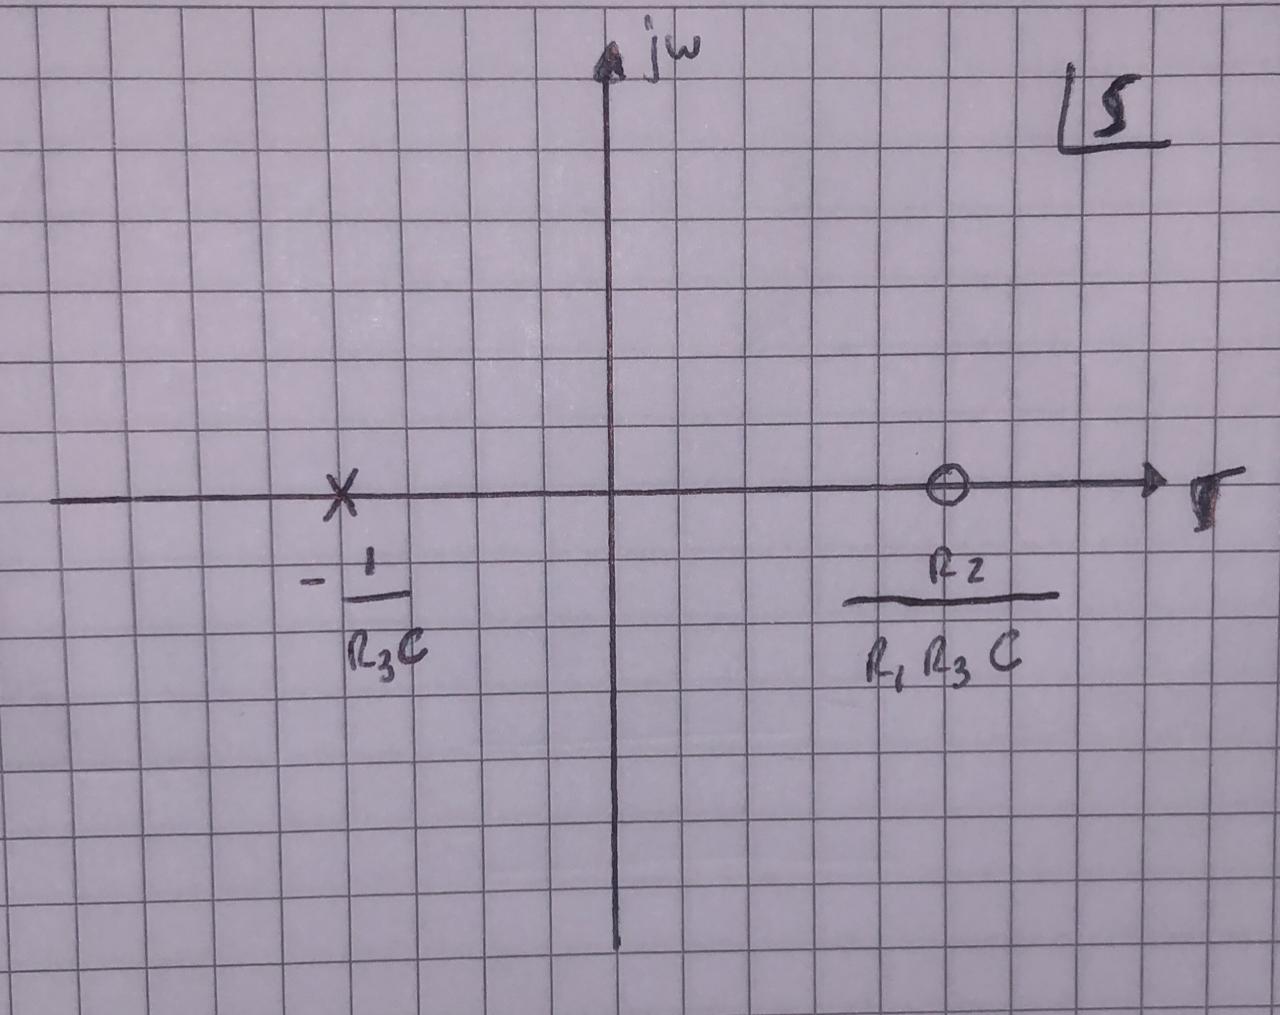 jw
S
σ
- 1 / R₃C
R2 / R₁ R₃ C